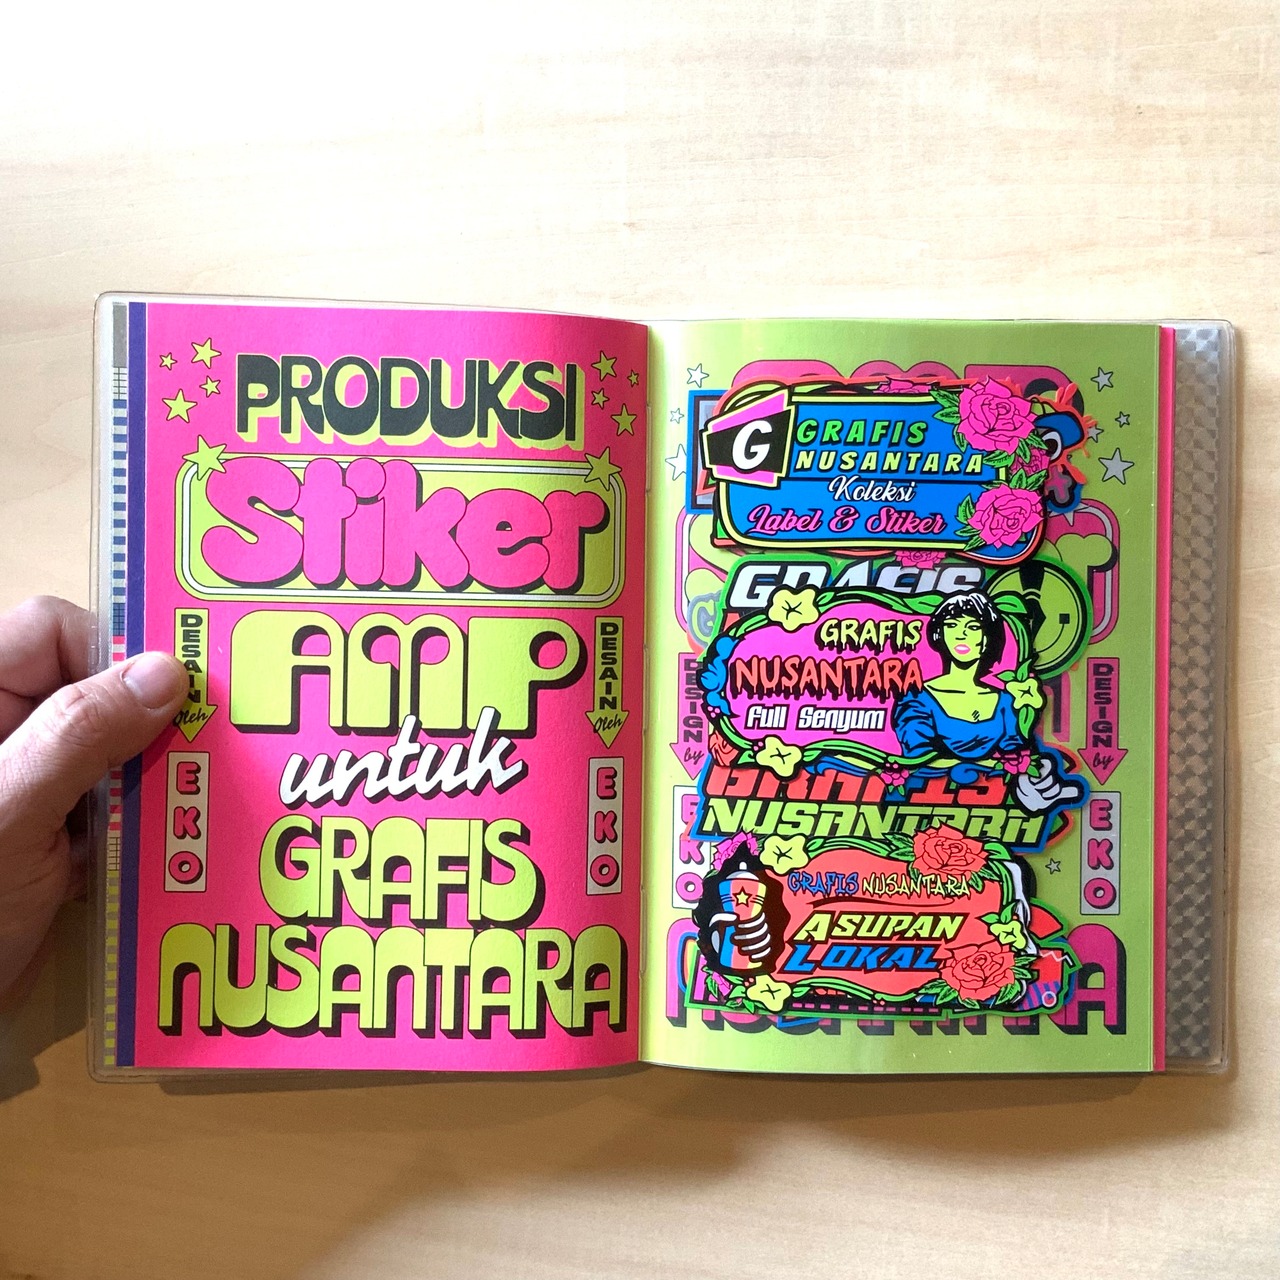 PRODUKSI
Stiker
AMP
untuk
GRAFIS
NUSANTARA
DESAIN
oleh
EKO
DESAIN
oleh
EKO
G
GRAFIS
NUSANTARA
Koleksi
Label & Stiker
GRAFIS
GRAFIS
NUSANTARA
Full Senyum
GRAFIS
NUSANTARA
GRAFIS NUSANTARA
ASUPAN
LOKAL
DESIGN
by
EKO
DESIGN
by
EKO